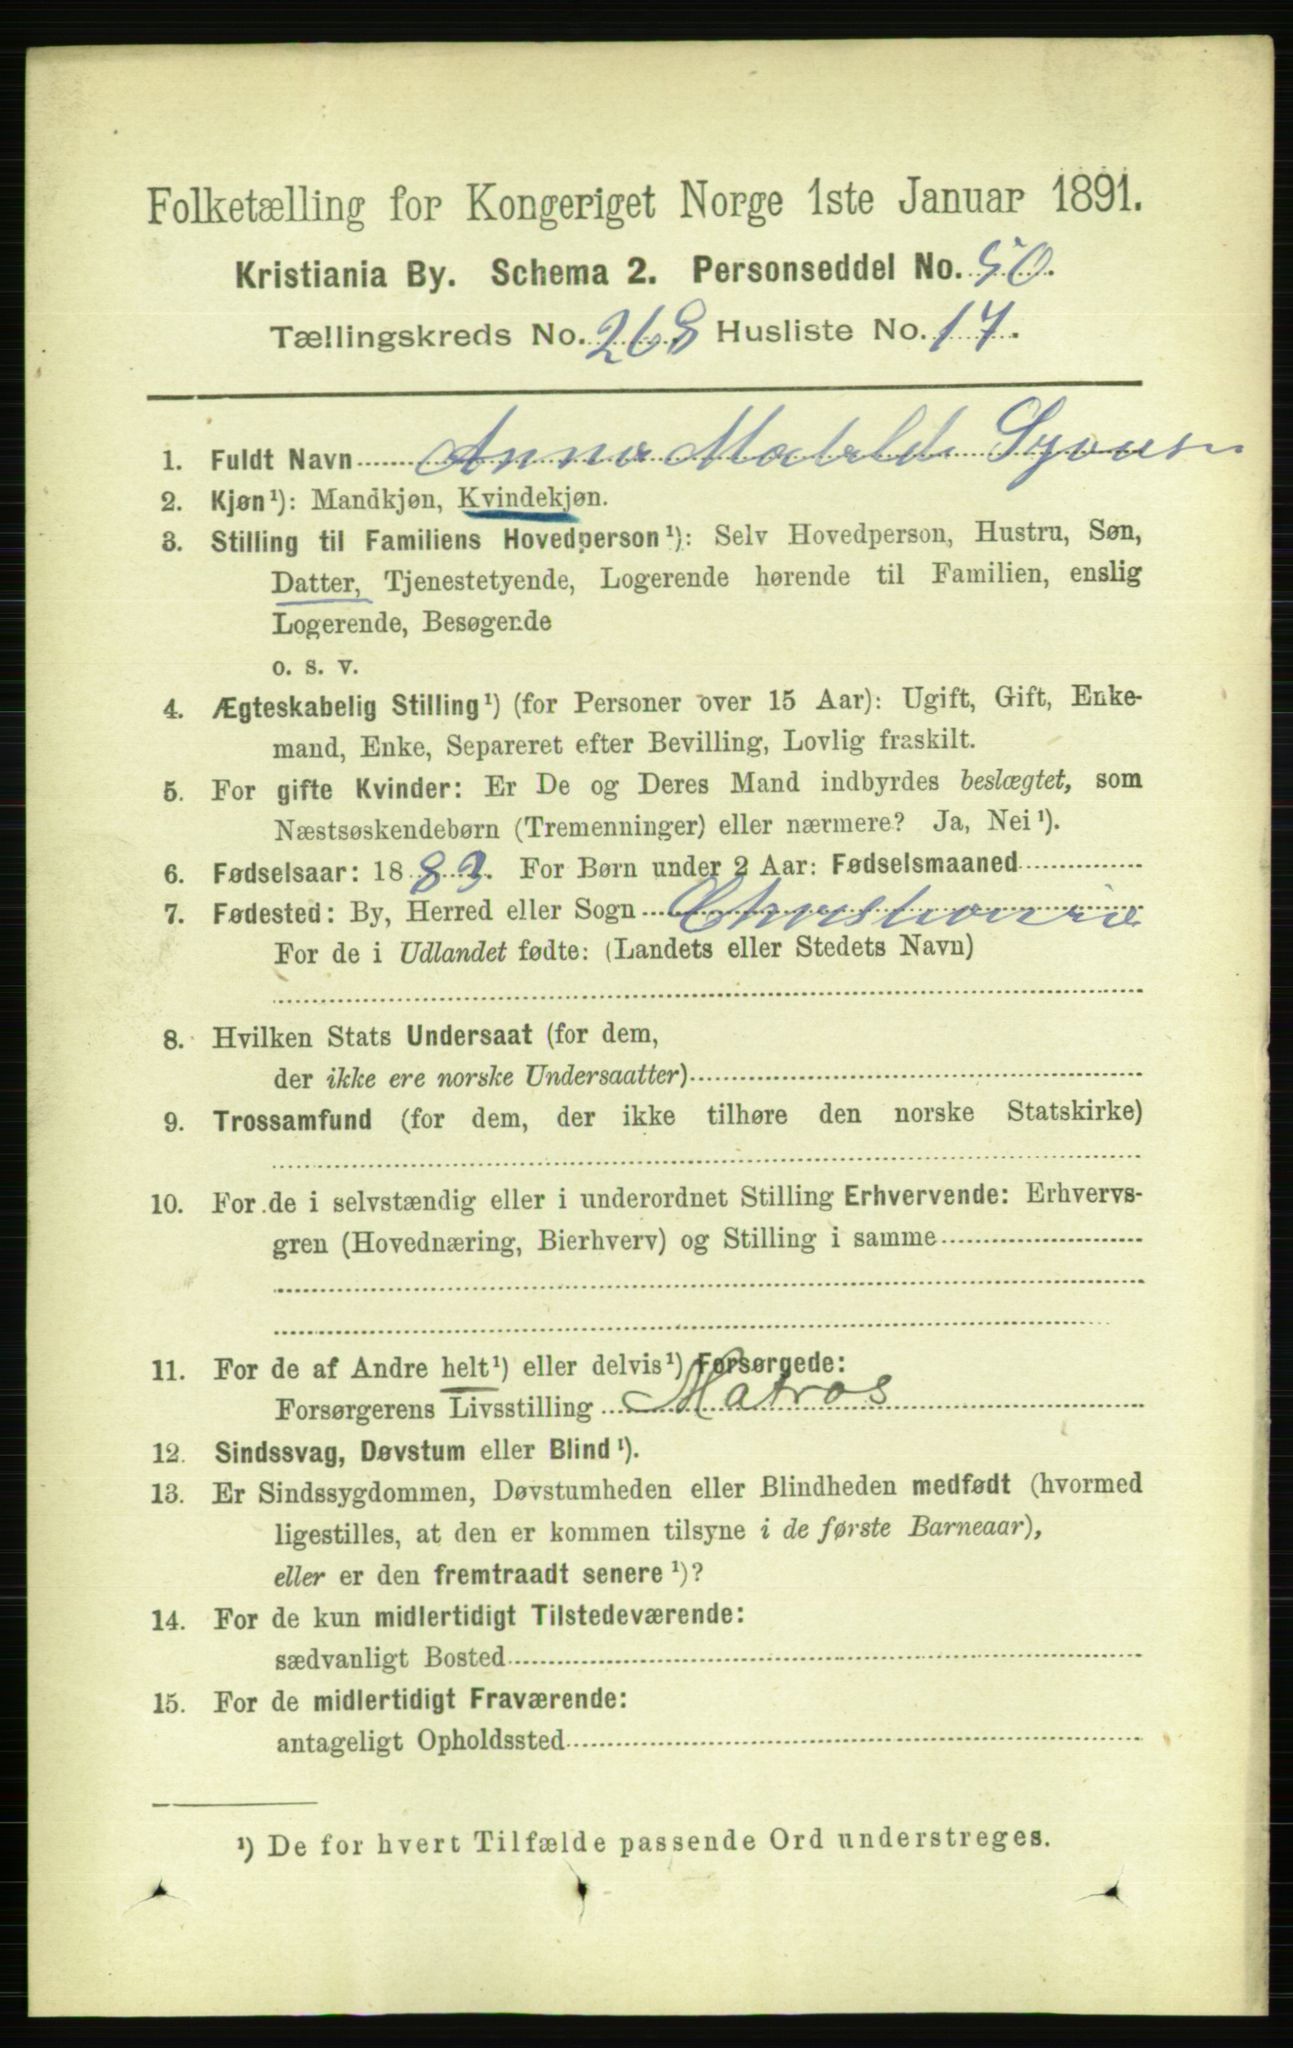 Folketælling for Kongeriget Norge 1ste Januar 1891.
Kristiania By. Schema 2. Personseddel No. 50.
Tællingskreds No. 268 Husliste No. 17.
1. Fuldt Navn Anna Matilde
2. Kjøn¹): Mandkjøn, Kvindekjøn.
3. Stilling til Familiens Hovedperson¹): Selv Hovedperson, Hustru, Søn,
Datter, Tjenestetyende, Logerende hørende til Familien, enslig
Logerende, Besøgende
o. s. v.
4. Ægteskabelig Stilling¹) (for Personer over 15 Aar): Ugift, Gift, Enke-
mand, Enke, Separeret efter Bevilling, Lovlig fraskilt.
5. For gifte Kvinder: Er De og Deres Mand indbyrdes beslægtet, som
Næstsøskendebørn (Tremenninger) eller nærmere? Ja, Nei¹).
6. Fødselsaar: 1883. For Børn under 2 Aar: Fødselsmaaned
7. Fødested: By, Herred eller Sogn Christiania
For de i Udlandet fødte: (Landets eller Stedets Navn)
8. Hvilken Stats Undersaat (for dem,
der ikke ere norske Undersaatter)
9. Trossamfund (for dem, der ikke tilhøre den norske Statskirke)
10. For de i selvstændig eller i underordnet Stilling Erhvervende: Erhvervs-
gren (Hovednæring, Bierhverv) og Stilling i samme
11. For de af Andre helt¹) eller delvis¹) Forsørgede:
Forsørgerens Livsstilling Matros
12. Sindssvag, Døvstum eller Blind¹).
13. Er Sindssygdommen, Døvstumheden eller Blindheden medfødt (hvormed
ligestilles, at den er kommen tilsyne i de første Barneaar),
eller er den fremtraadt senere¹)?
14. For de kun midlertidigt Tilstedeværende:
sædvanligt Bosted
15. For de midlertidigt Fraværende:
antageligt Opholdssted
¹) De for hvert Tilfælde passende Ord understreges.